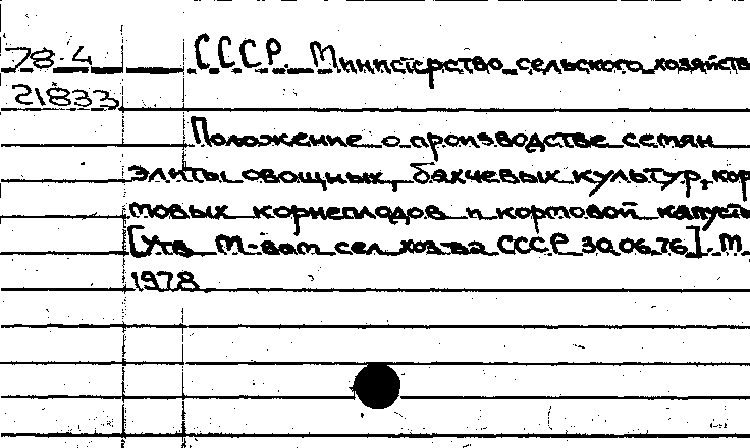 78-4 СССР. Министерство сельского хозяйств
21833
Положение о производстве семян
элиты овощных, бахчевых культур, кор
мовых корнеплодов и кормовой капусты
[Утв. М-вом сел. хоз-ва СССР 30.06.76]. М.,
1978.